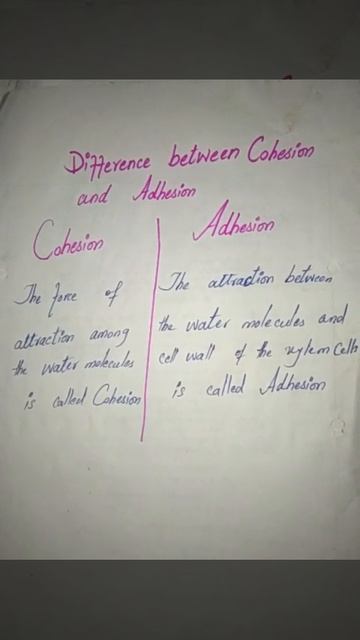 Difference between Cohesion
and Adhesion
Cohesion
The force of
attraction among
the water molecules
is called Cohesion
Adhesion
The attraction between
the water molecules and
cell wall of the xylem cells
is called Adhesion